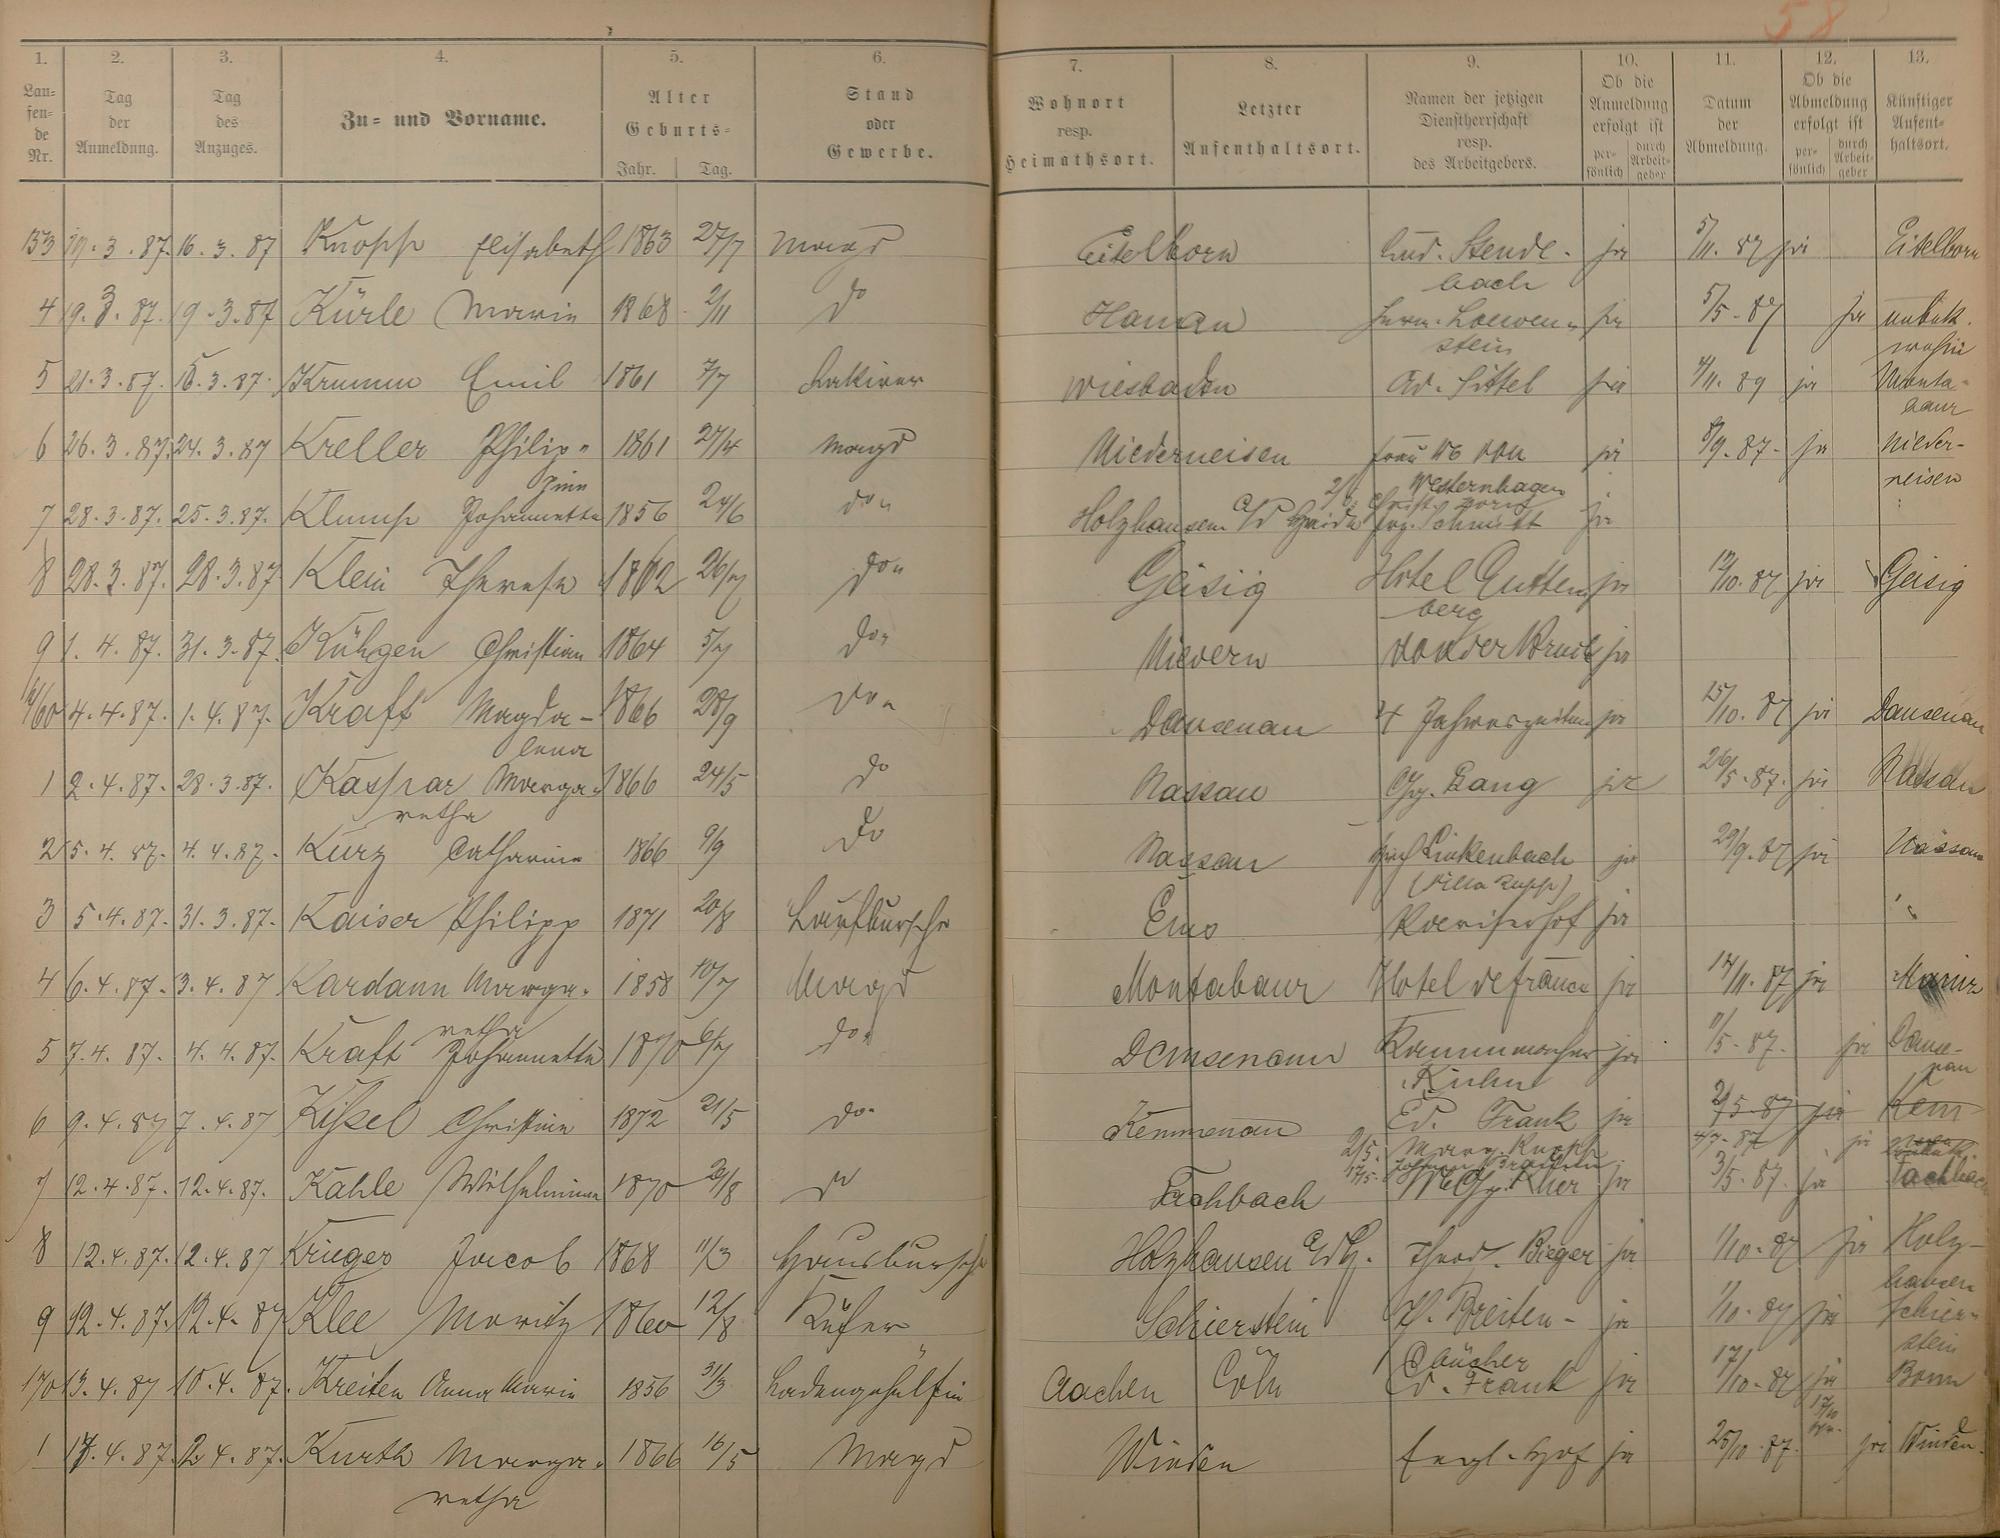 58
1. 2. 3. 4. 5. 6. 7. 8. 9. 10. 11. 12. 13.
Lau=fen=de Nr. Tag der Anmeldung. Tag des Anzuges. Zu= und Vorname. Alter Geburts= Jahr. Tag. Stand oder Gewerbe. Wohnort resp. Heimathsort. Letzter Aufenthaltsort. Namen der jetzigen Dienstherrschaft resp. des Arbeitgebers. Ob die Anmeldung erfolgt ist per=sönlich durch Arbeit=geber Datum der Abmeldung. Ob die Abmeldung erfolgt ist per=sönlich durch Arbeit=geber Künftiger Aufent=haltsort.
153 19.3.87. 16.3.87 Knopp Elisabeth 1863 27/7 Magd Eitelborn Lud. Stende- ja 5/11.87 ja Eitelborn
bach
4 19.3.87. 19.3.87 Kürle Marie 1868 2/11 do Hanau Herm. Loewen- ja 5/5-87 ja unbek.
stein wohin
5 21.3.87. 16.3.87. Krumm Emil 1861 7/7 Lakirer Wiesbaden Ad. Sittel ja 4/11.89 ja Monta-
baur
6 26.3.87. 24.3.87 Kreller Philip- 1861 27/4 Magd Niederneisen Frau Wb von ja 8/9.87- ja Nieder-
pine Westernhagen neisen
7 28.3.87. 25.3.87. Klump Johannette 1856 24/6 do Holzhausen a/d Haide Schmidt ja
8 28.3.87. 28.3.87 Klein Therese 1862 26/7 do Geisig Hotel Gutten ja 12/10.87 ja Geisig
berg
9 1.4.87. 31.3.87. Kühgen Christian 1864 5/7 do Nievern von der Bruck ja
160 4.4.87. 1.4.87. Kraft Magda- 1866 28/9 do Dausenau 4 Jahreszeiten ja 15/10.87 ja Dausenau
lena
1 2.4.87. 28.3.87. Kaspar Marga- 1866 24/5 do Nassau Chr. Lang ja 26/5.87. ja Nassau
retha
2 5.4.87. 4.4.87. Kurz Catharine 1866 9/9 do Nassau Linkenbach ja 29/9.87 ja Nassau
(Villa Rupp)
3 5.4.87. 31.3.87. Kaiser Philipp 1871 20/8 Laufbursche Ems Pariserhof ja
4 6.4.87. 3.4.87 Kardann Marga- 1858 10/7 Magd Montabaur Hotel de france ja 14/11.87 ja Mainz
retha
5 7.4.87. 4.4.87. Kraft Johannette 1870 6/7 do Dausenau ja 11/5-87. ja Dause-
Kuhn nau
6 9.4.87 7.4.87 Kissel Christine 1872 21/5 do Kemmenau Ed. Frank ja 2/5-87 ja Kem
2/5. Marg. Rupp 4/7-87 ja
7 12.4.87. 12.4.87. Kahle Wilhelmine 1870 21/8 do Fachbach ja 3/5.87. ja Fachbach
8 12.4.87. 12.4.87 Krüger Jacob 1868 11/3 Hausbursche Holzhausen Theod. Bieger ja 1/10.87 ja Holz-
hausen
9 12.4.87. 12.4.87 Klee Moritz 1860 12/8 Küfer Schierstein H. Breiten- ja 1/10.87 ja Schier-
bücher stein
170 13.4.87 10.4.87. Kreiten Anna Marie 1856 31/3 Ladengehülfin Aachen Cöln Ed. Frank ja 17/10-87 ja Bonn
1 14.4.87. 12.4.87. Kurth Marga- 1866 16/5 Magd Winden Engl. Hof ja 25/10.87. ja Winden.
retha